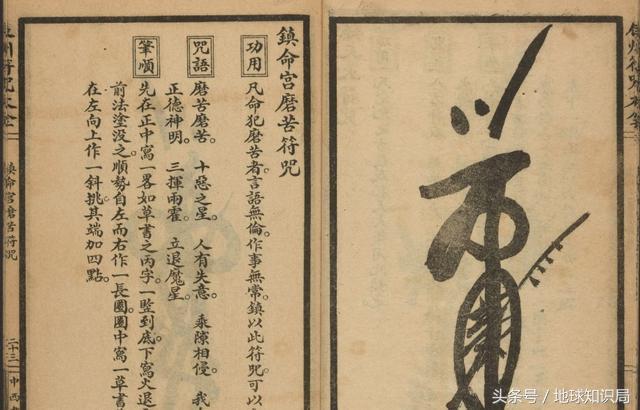 鎮命宮磨苦符咒
功用
凡命犯磨苦者。言語無倫。作事無常。鎮以此符咒可以
咒語
磨苦磨苦。十惡之星。人有失意。乘隙相侵。我
正德神明。三揮雨霍。立退魔星。
筆順
先在正中寫一畧如草書之丙字。一竪到底。下寫火退
前法塗没之。順勢自左而右作一長圈。圈中寫一草書
在左向上作一斜挑。其端加四點。
鎮命宮磨苦符咒
二十三
中西
头条号／地球知识局